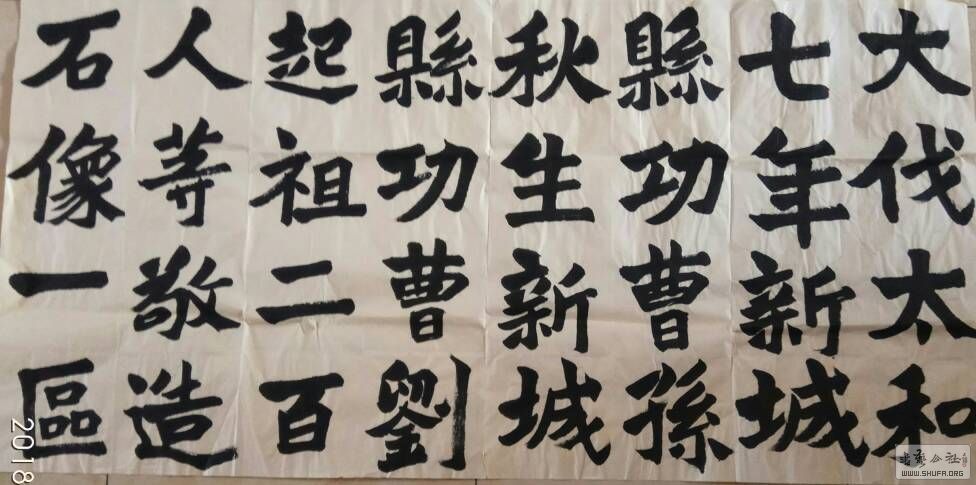 大伐太和
七年新城
縣功曹孫
秋生新城
縣功曹劉
起祖二百
人等敬造
石像一區
2018
WWW.SHUFA.ORG